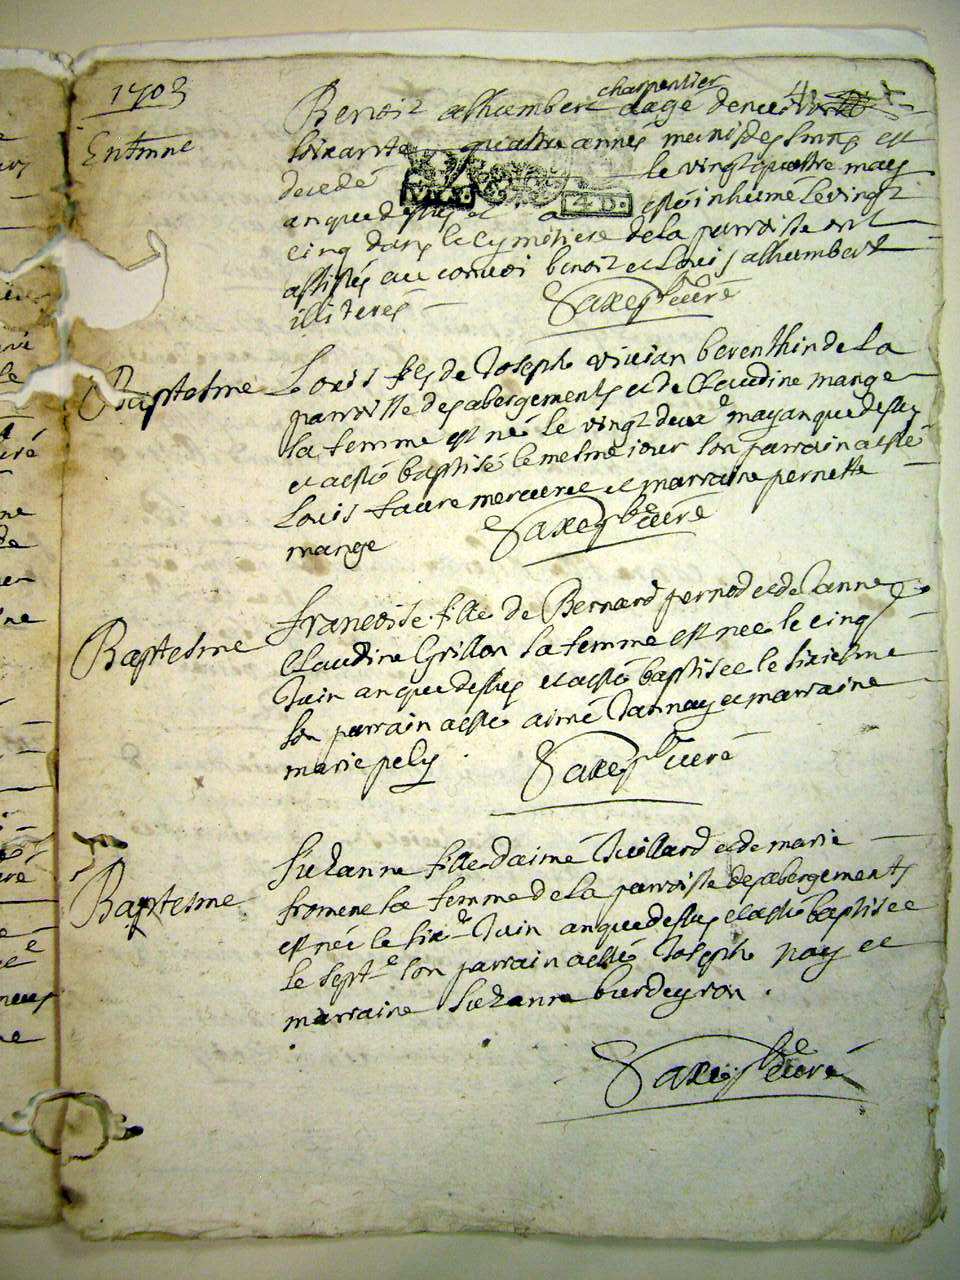 1703
charpentier
Entmne
Benoit alhambert aagé denviron
soixante quattre annés muni des smns est
decedé le vingt quattre may
an que dessus et a esté inhumé le vingt
cinq dans le cymetiere de la parroisse ont
assistés au convoi benoit et Louis alhumbert
illiterés
Saxe pbre curé
Baptesme
Louis fils de Joseph vivian berenthin de La
parroisse des abergements et de Claudine mange
sa femme est né le vingt deux may an que dessus
et a esté baptisé le mesme jour son parrain a esté
Louis faure et marraine pernette
mange
Saxe pbre curé
Baptesme
francoise fille de Bernard pernod et de Janne
Claudine Grillon sa femme est nee le cinq
Juin an que dessus et a esté baptisee le sixiesme
son parrain a esté aimé Jannay et marraine
marie pely
Saxe pbre curé
Baptesme
Suzanne fille d'aimé Juillard et de marie
fromene sa femme de La parroisse des abergements
est née le six Juin an que dessus et a esté baptisee
le septe son parrain a esté Joseph nay et
marraine Suzanne burdeyron .
Saxe pbre curé
4. D.